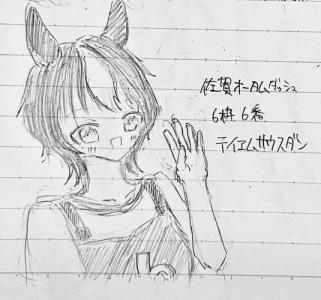 佐賀オータムダッシュ
6枠6番
テイエムサウスダン
6